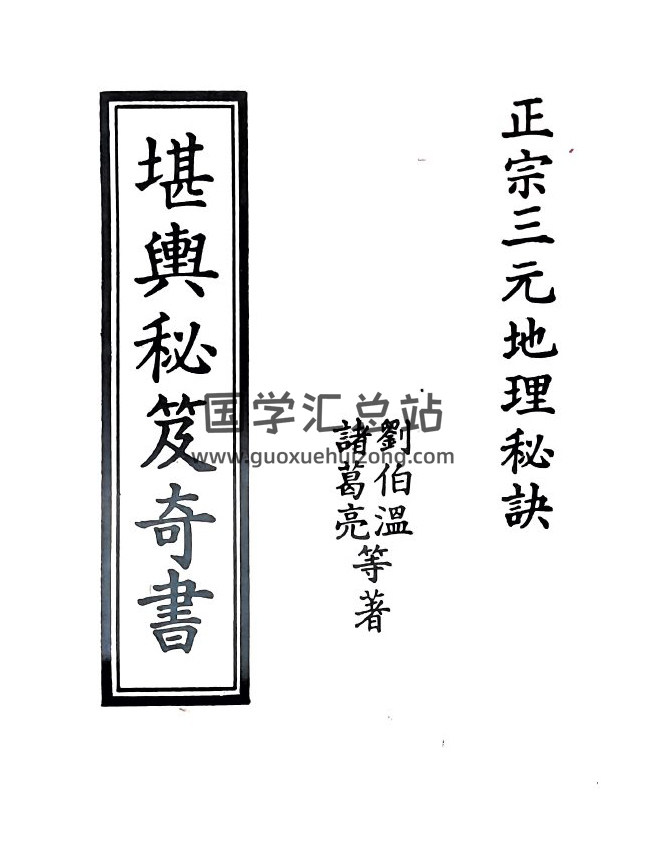 正宗三元地理秘訣
劉伯溫
諸葛亮
等著
堪輿秘笈奇書
国学汇总站
www.guoxuehuizong.com